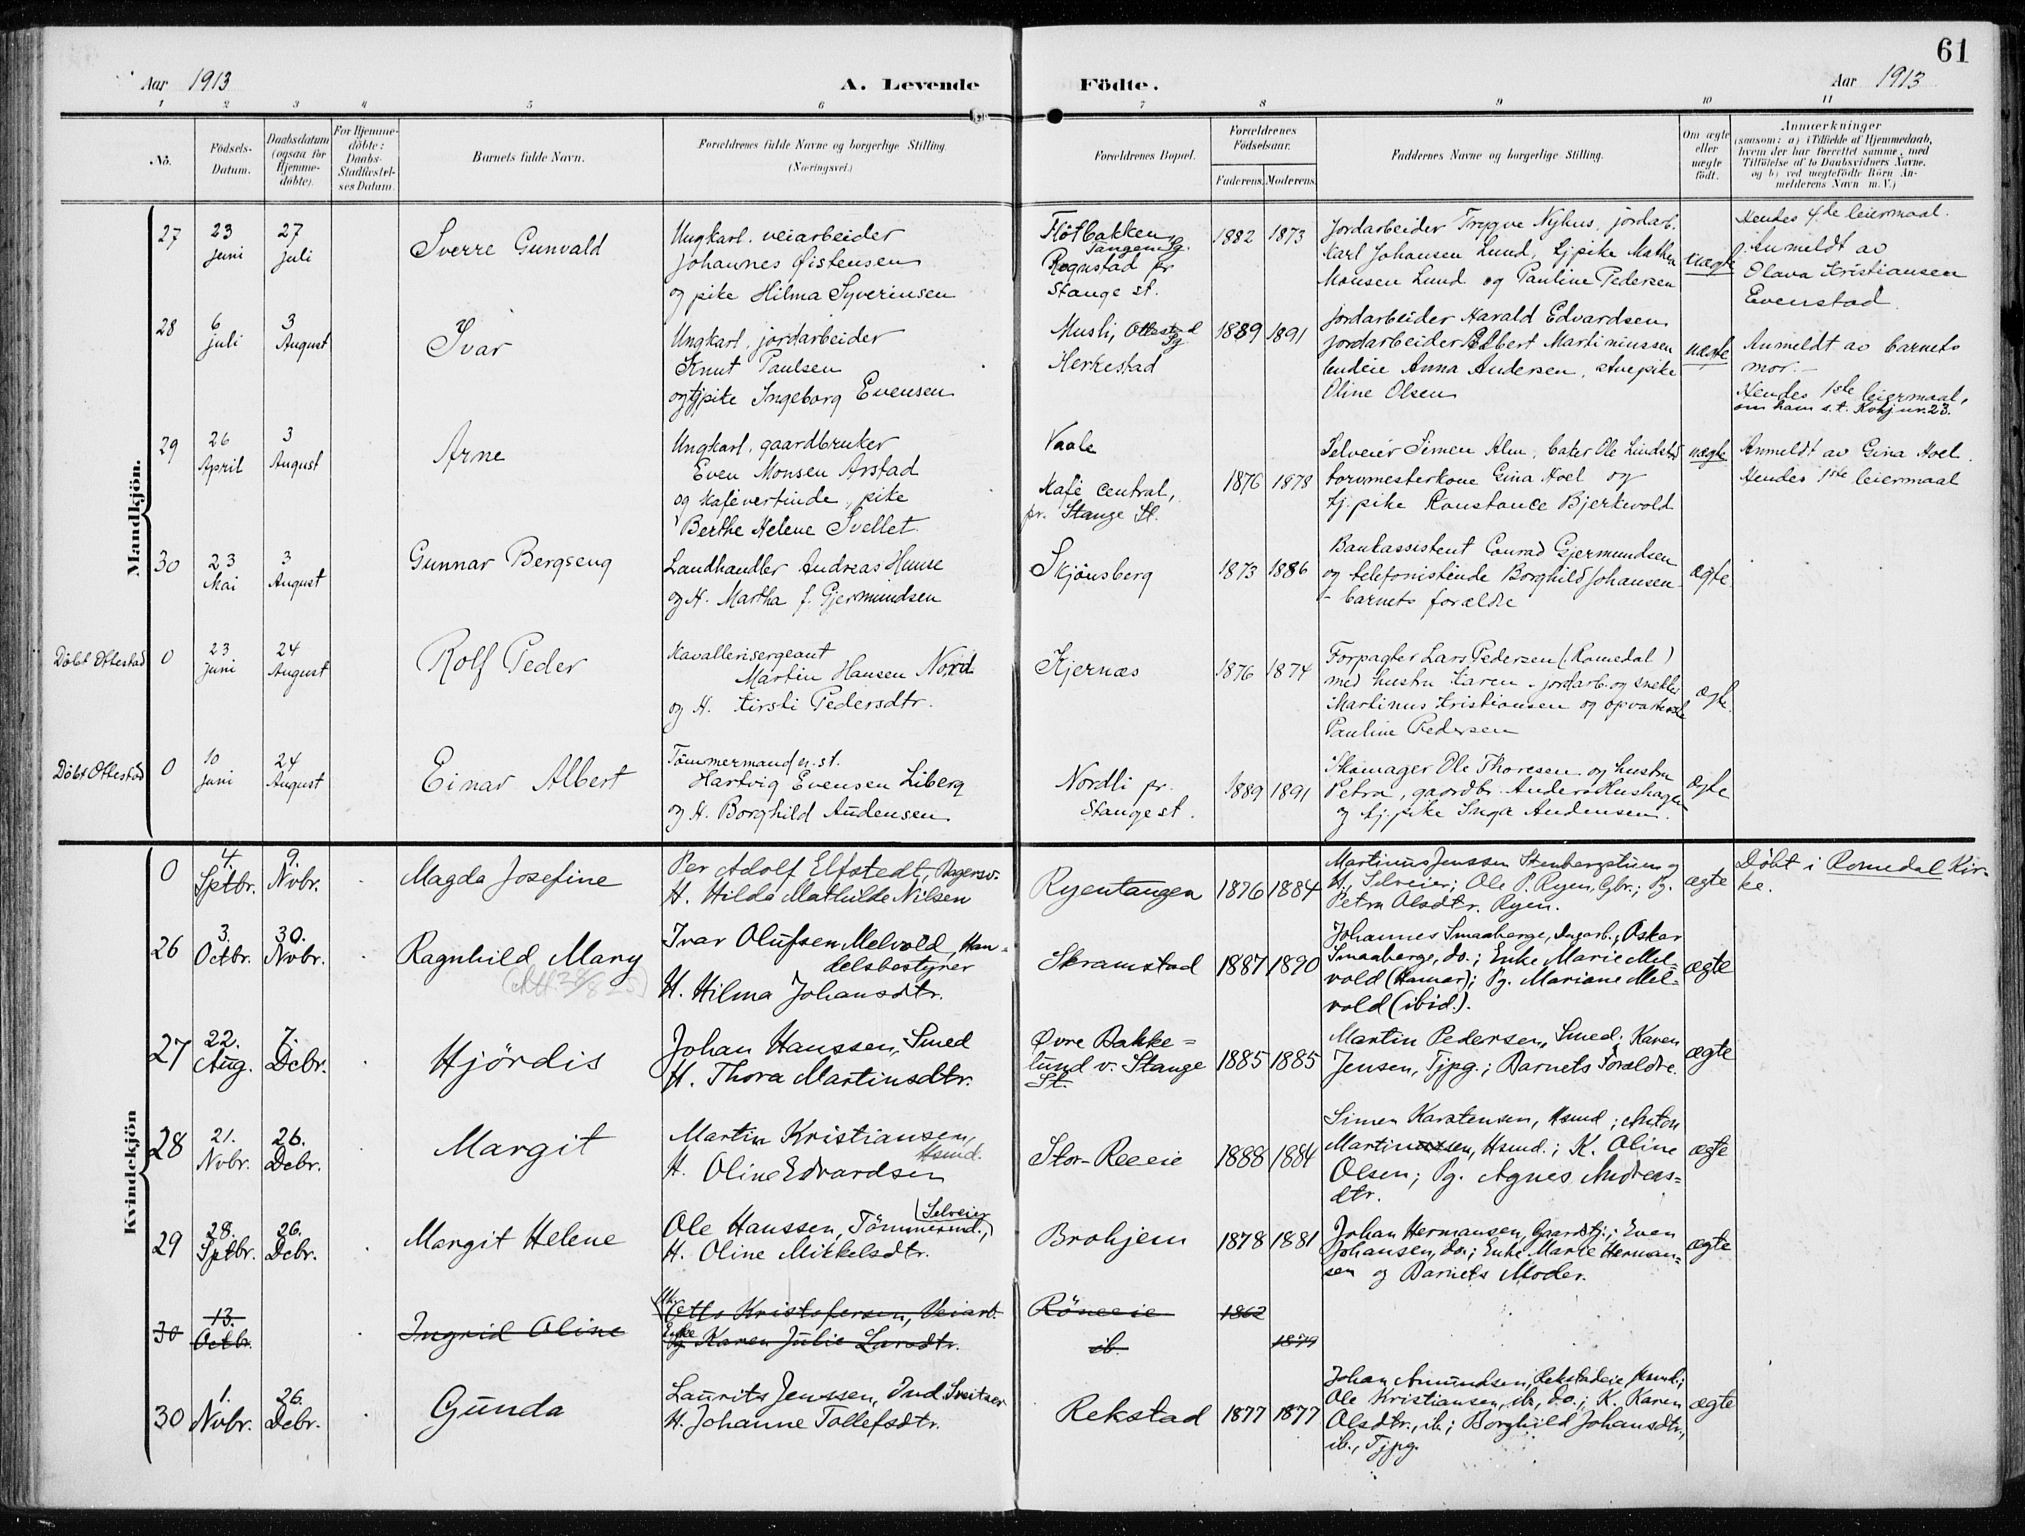 61
Aar 1913
A. Levende Födte.
Aar 1913
1 2 3 4 5 6 7 8 9 10 11
No.
Födsels-
Datum.
Daabsdatum
(ogsaa for
Hjemme-
döbte).
For Hjemme-
döbte:
Daabs-
Stadfæstel-
ses Datum.
Barnets fulde Navn.
Forældrenes fulde Navne og borgerlige Stilling.
(Næringsvei.)
Forældrenes Bopæl.
Forældrenes
Fødselsaar.
Faderens.
Moderens.
Faddernes Navne og borgerlige Stilling.
Om ægte
eller
uægte
födt.
Anmærkninger
(saasom: a) i Tilfælde af Hjemmedaab,
hvem der har forrettet samme, med
Tilföielse af to Daabsvidners Navne,
og b) ved uægtefödte Börn An-
melderens Navn m. V.)
Mandkjön.
27
23
juni
27
juli
Sverre Gunvald
Ungkarl. veiarbeider
Johannes Øistensen
og pike Hilma Syverinsen
Flötbakken
Tangen
Rognstad pr
Stange st.
1882 1873
Jordarbeider Trygve Nyhus, jordarb.
Karl Johansen Lund, tj.pike Mathea
Monsen Lund og Pauline Pedersen
uægte
Hendes 4de leiermaal.
Anmeldt av
Olava Kristiansen
Evenstad
28
6
juli
3
August
Ivar
Ungkarl, jordarbeider
Knut Paulsen
og tjpike Ingeborg Evensen
Musli, Ottestad
Herkestad
1889 1891
Jordarbeider Harald Edvardsen
jordarbeider Albert Martiniussen
budeie Anna Andersen, stuepike
Oline Olsen
uægte
Anmeldt av barnets
mor.
Hendes 1ste leiermaal,
om ham s.t.
29
26
April
3
August
Arne
Ungkarl. gaardbruker
Even Monsen Arstad
og kafévertinde, pike
Berthe Helene Svellet.
Vaale
Kafé Central,
pr. Stange St.
1876 1878
Selveier Simen Alm, bater Ole Lindstad
torvmesterkone Gina Hoel og
tj.pike Konstance Bjerkevold
uægte
Anmeldt av Gina Hoel.
Hendes 1ste leiermaal
30
23
Mai
3
August
Gunnar Bergseng
Landhandler Andreas Hunse
og H. Martha f. Gjermundsen
Skjönsberg
1873 1886
Bankassistent Conrad Gjermundsen
og telefonistinde Borghild Johansen
- barnets forældre
ægte
Döbt Ottestad
0
23
juni
24
August
Rolf Peder
Kavallerisergeant
Martin Hansen Nord
og H. Kirsti Pedersdtr.
Kjernæs
1876 1874
Forpagter Lars Pedersen (Romedal)
med hustru Karen - jordarb. og snekker
Martinus Kristiansen og opvarterske
Pauline Pedersen
ægte.
Döbt Ottestad
0
10
juni
24
August
Einar Albert
Tömmermand
Hartvig Evensen Liberg
og H. Borghild Audensen
Nordli pr.
Stange st.
1889 1891
Skomager Ole Thoresen og hustru
Petra, gaardbr. Anders Kushagen
og tj.pike Inga Audensen.
ægte
Kvindekjön
0
4.
Septbr.
9.
Nvbr.
Magda Josefine
Per Adolf Elfstedt, Bagersv.
H. Hilda Mathilde Nilsen
Ryentangen
1876 1884
Martinus Jenssen Stenbergstuen og
H., Selveier; Ole P. Ryen, Gbr.; Pg.
Petra Olsdtr. Ryen.
ægte
Döbt i Romedal Kir-
ke.
26
3.
Octbr.
30.
Nvbr.
Ragnhild Mary
Ivar Olufsen Melvold, Han-
delsbestyrer
H. Hilma Johansdtr.
Skramstad
1887 1890
Johannes Smaaberge, Dagarb.; Oskar
Smaaberge, do.; Enke Marie Mel-
vold (Hamar); Pg. Mariane Mel-
vold (ibid.).
ægte
27
22.
Aug.
7.
Dcbr.
Hjördis
Johan Hanssen, Smed
H. Thora Martinsdtr.
Øvre Bakke-
lund v. Stange
St.
1885 1885
Martin Pedersen, Smed; Karen
Jensen, Tjpg.; Barnets Forældre.
ægte
28
21.
Nvbr.
26.
Dcbr.
Margit
Martin Kristiansen,
Hsmd.
H. Oline Edvardsen
Stor-Reeeie
1888 1884
Simen Karstensen, Hsmd; Anton
Martinussen, Hsmd.; K. Oline
Olsen; Pg. Agnes Andreas-
dtr.
ægte
29
28.
Sptbr.
26.
Dcbr.
Margit Helene
(Selveier)
Ole Hanssen, Tömmermd.,
H. Oline Mikkelsdtr.
Brohjem
1878 1881
Johan Hermansen, Gaardstj.; Even
Johansen, do.; Enke Marie Herman-
sen og Barnets Moder.
ægte
30
13.
Octbr.
Ingrid Oline
Otto Kristofersen, Veiarb.
Enke
Karen Julie Larsdtr.
Röneeie
ib.
1862
1879
30
1.
Nvbr.
26.
Dcbr.
Gunda
Laurits Jenssen, Ind. Sveitser
H. Johanne Tollefsdtr.
Rekstad
1877 1877
Johan Amundsen, Rekstadeie, Hsmd.;
Ole Kristiansen, ib., do.; K. Karen
Olsdtr., ib.; Borghild Johansdtr,
ib., Tjpg.
ægte